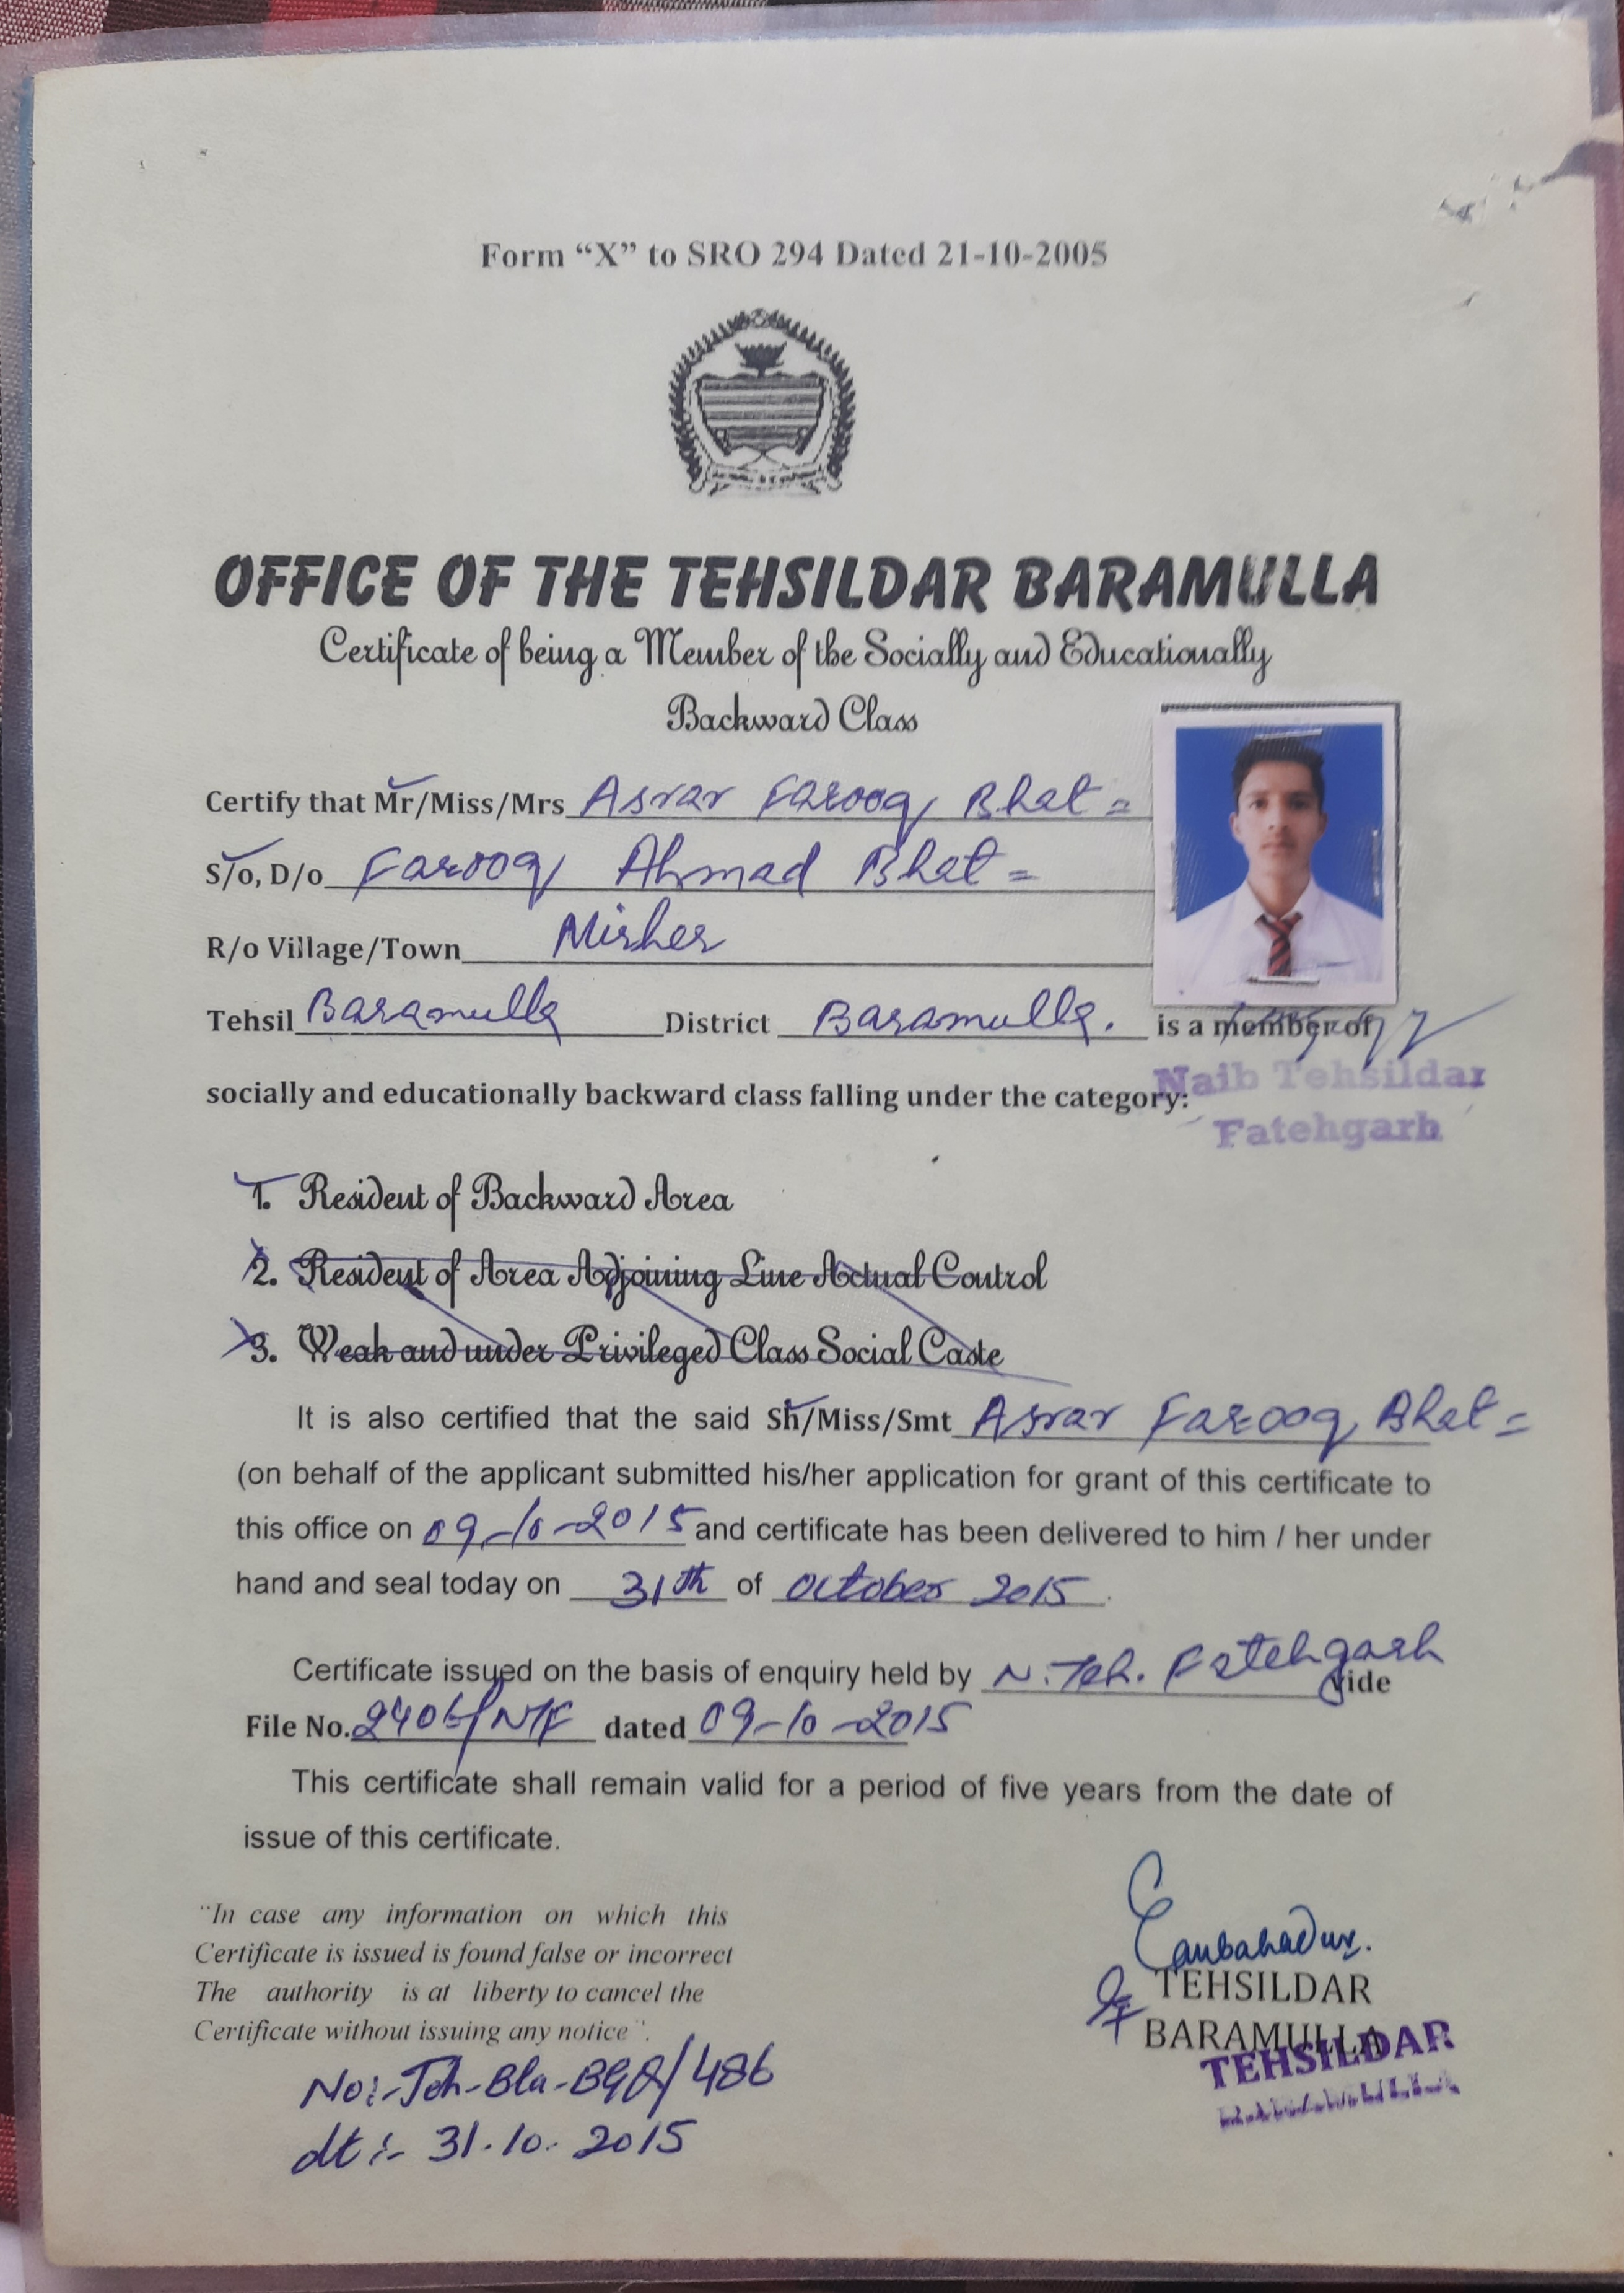 Form “X” to SRO 294 Dated 21-10-2005
OFFICE OF THE TEHSILDAR BARAMULLA
Certificate of being a Member of the Socially and Educationally
Backward Class
Certify that Mr/Miss/Mrs Asrar Farooq Bhat =
S/o, D/o Farooq Ahmad Bhat =
R/o Village/Town Mirher
Tehsil Baramulla District Baramulla. is a member of
socially and educationally backward class falling under the category:
Naib Tehsildar
Fatehgarh
1. Resident of Backward Area
2. Resident of Area Adjoining Line Actual Control
3. Weak and under Privileged Class Social Caste
It is also certified that the said Sh/Miss/Smt Asrar Farooq Bhat =
(on behalf of the applicant submitted his/her application for grant of this certificate to
this office on 09-10-2015 and certificate has been delivered to him / her under
hand and seal today on 31th of October 2015.
Certificate issued on the basis of enquiry held by N.Teh. Fatehgarh vide
File No. dated 09-10-2015
This certificate shall remain valid for a period of five years from the date of
issue of this certificate.
“In case any information on which this
Certificate is issued is found false or incorrect
The authority is at liberty to cancel the
Certificate without issuing any notice”.
TEHSILDAR
BARAMULLA
TEHSILDAR
BARAMULLA
dt :- 31.10.2015